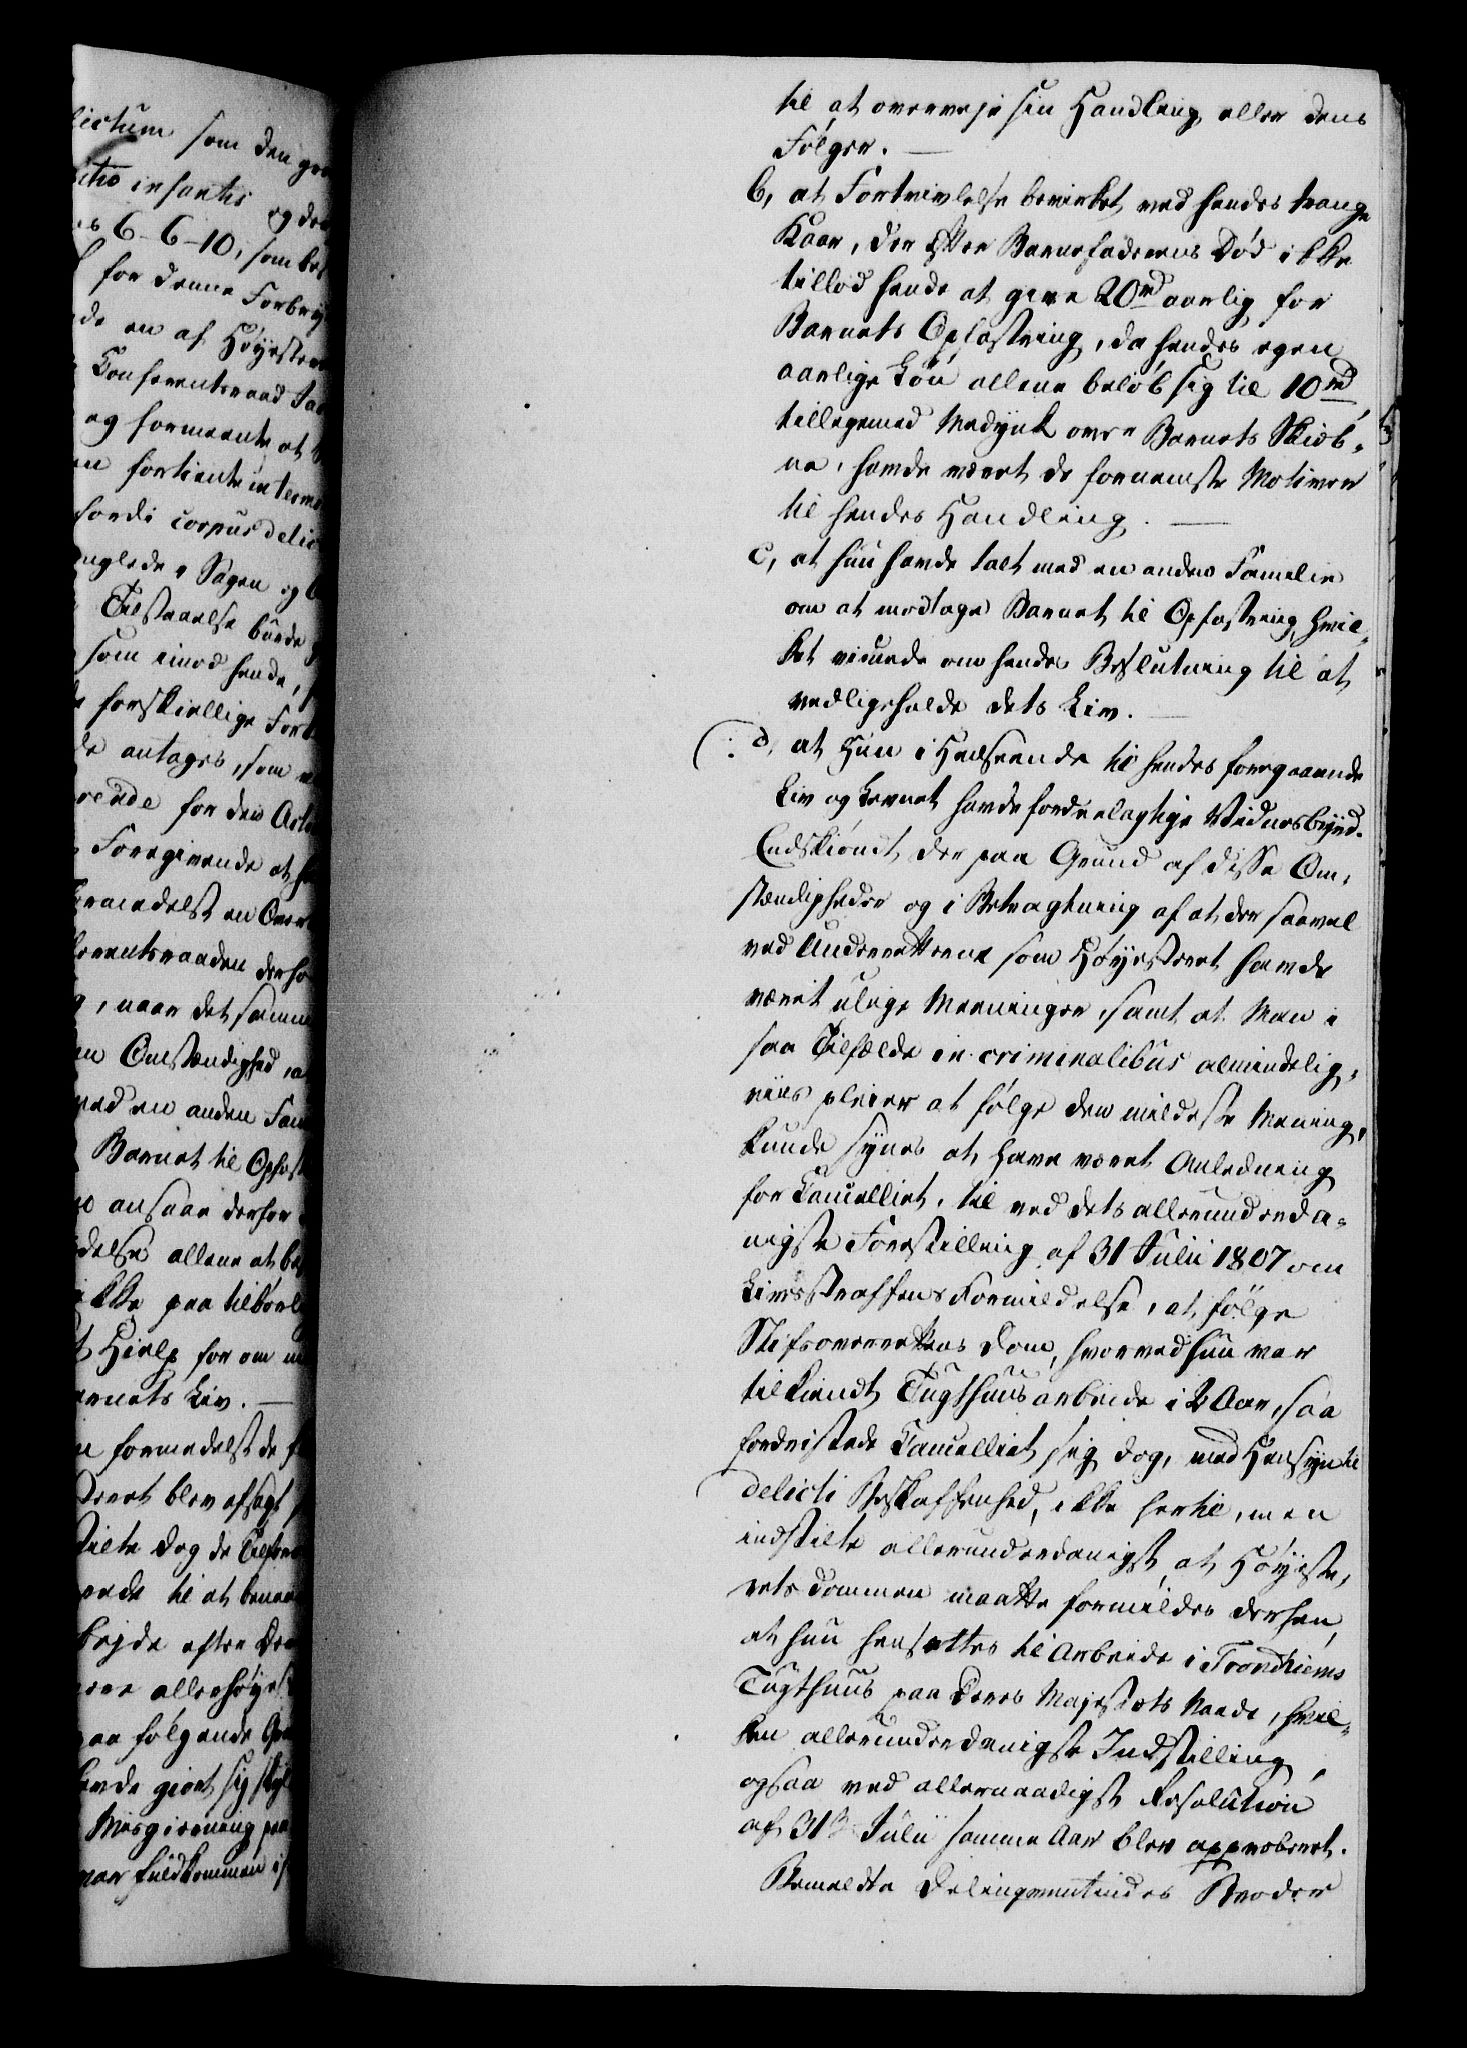 lictum som den gro
itio infantis og der
6-6-10, som be
for denne Forbry
de en af Høyester
Conferentsraad
og formeente at
fortiente in term
fordi corpus delic
anglede i Sagen og
Tilstaaelse burde
som imod hende,
forskiellige For
de antages, som
rende for den
Foregivende at
formedelst en Over
ferentsraaden derfo
, naar det samm
Omstændighed,
med en anden Fam
Barnet til Opfost
ansaae derfor
delse allene at be
ikke paa tilbørl
Hielp for om
arnets Liv. —
formedelst de
Sveret blev afsagt
stilte dog de
vede til at benaa
bejde efter
allerhøyest
paa følgende
havde giort sig skyl
Misgierning paa
var fuldkommen i
til at overveje sin Handling eller dens
Følger. —
b, at Fortvivlelse bevirket ved hendes trange
Kaar, der efter Barnefaderens Død ikke
tillod hende at give 20rd aarlig for
Barnets Opfostring, da hendes egen
aarlige Løn allene beløb sig til 10rd,
tillegemed Medynk over Barnets Skieb-
ne, havde været de fornemste Motiver
til hendes Handling. —
c, at hun havde talt med en anden Familie
om at modtage Barnet til Opfostring, hvil-
ket vidnede om hendes Beslutning til at
vedligeholde dets Liv. —
(: d, at hun i Henseende til hendes foregaaende
Liv og Levnet havde fordeelagtige Vidnesbyrd.
Endskiøndt der paa Grund af disse Om-
stændigheder og i Betragtning af at der saavel
ved Underretterne som Høyesteret havde
været ulige Meeninger, samt at Man i
saa Tilfælde in criminalibus almindelig-
viis pleier at følge den mildeste Mening,
kunde synes at have været Anledning
for Cancelliet, til ved dets allerunderda-
nigste Forestilling af 31 Julii 1807 om
Livsstraffens Formildelse, at følge
Stifsoverrettens Dom, hvorved hun var
tilkiendt Tugthuusarbeide i 2 Aar, saa
fordristede Cancelliet sig dog, med Hensyn til
delicti Beskaffenhed, ikke hertil, men
indstilte allerunderdanigst, at Høyeste-
rets Dommen maatte formildes derhen,
at hun hensættes til Arbeide i Trondhiems
Tugthuus paa Deres Majestæts Naade, hvil-
ken allerunderdanigste Indstilling
ogsaa ved allernaadigst Resolution
af 31 Julii samme Aar blev approberet.
Bemeldte Delinqventindes Broder